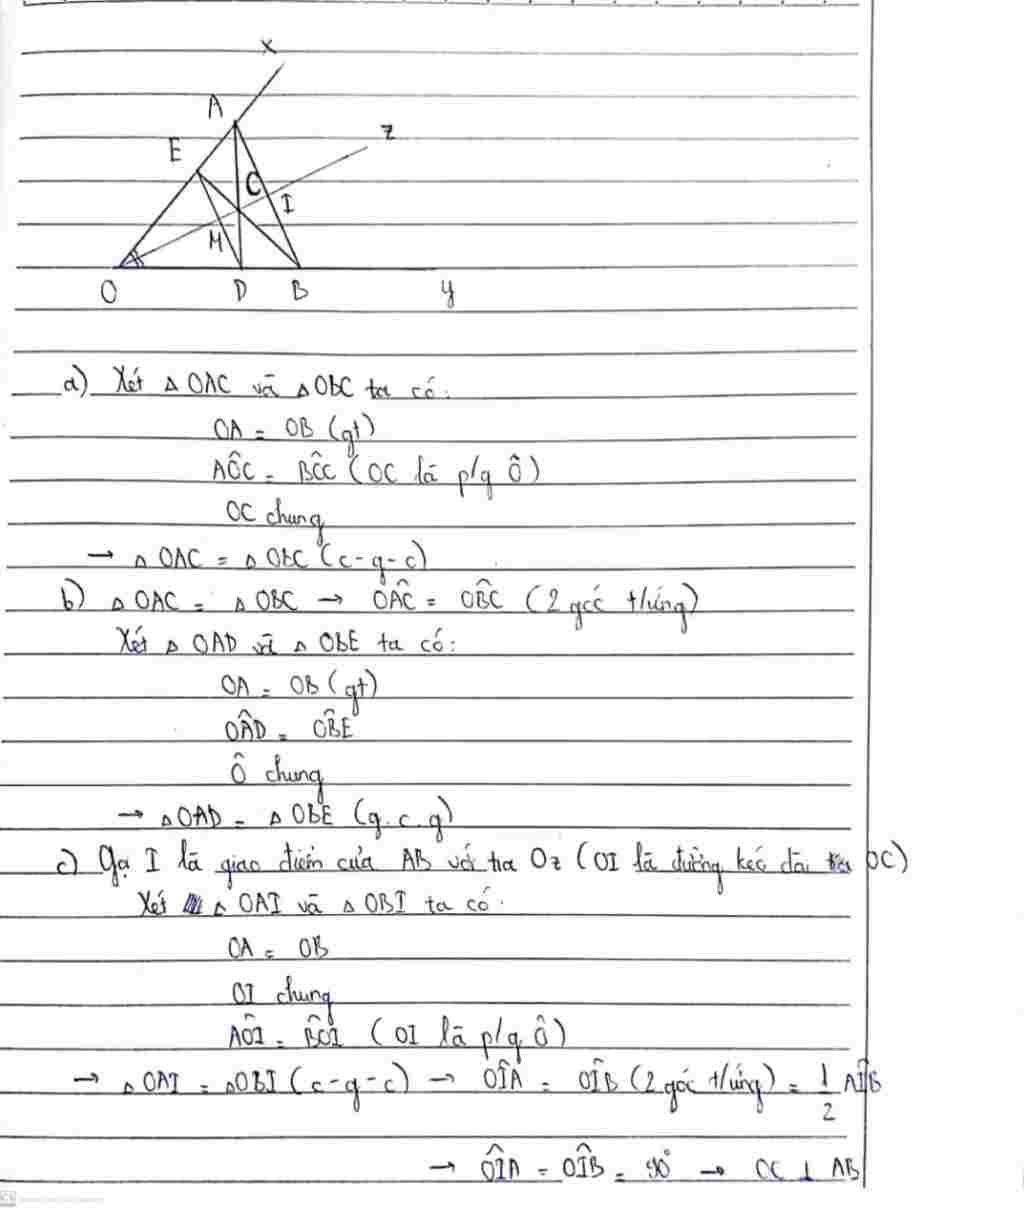 x
A
z
E
C
I
M
O D B y
a) Xét △OAC và △OBC ta có:
OA = OB (gt)
AÔC = BÔC (OC là p/g Ô)
OC chung
→ △OAC = △OBC (c-g-c)
b) △OAC = △OBC → OÂC = OB̂C (2 góc t/ứng)
Xét △OAD và △OBE ta có:
OA = OB (gt)
OÂD = OB̂E
Ô chung
→ △OAD = △OBE (g.c.g)
c) Gọi I là giao điểm của AB với tia Oz (OI là đường kéo dài của OC)
Xét △OAI và △OBI ta có:
OA = OB
OI chung
AÔI = BÔI (OI là p/g Ô)
→ △OAI = △OBI (c-g-c) → OÎA = OÎB (2 góc t/ứng) = 1/2 AÎB
→ OÎA = OÎB = 90° → OC ⊥ AB
CS